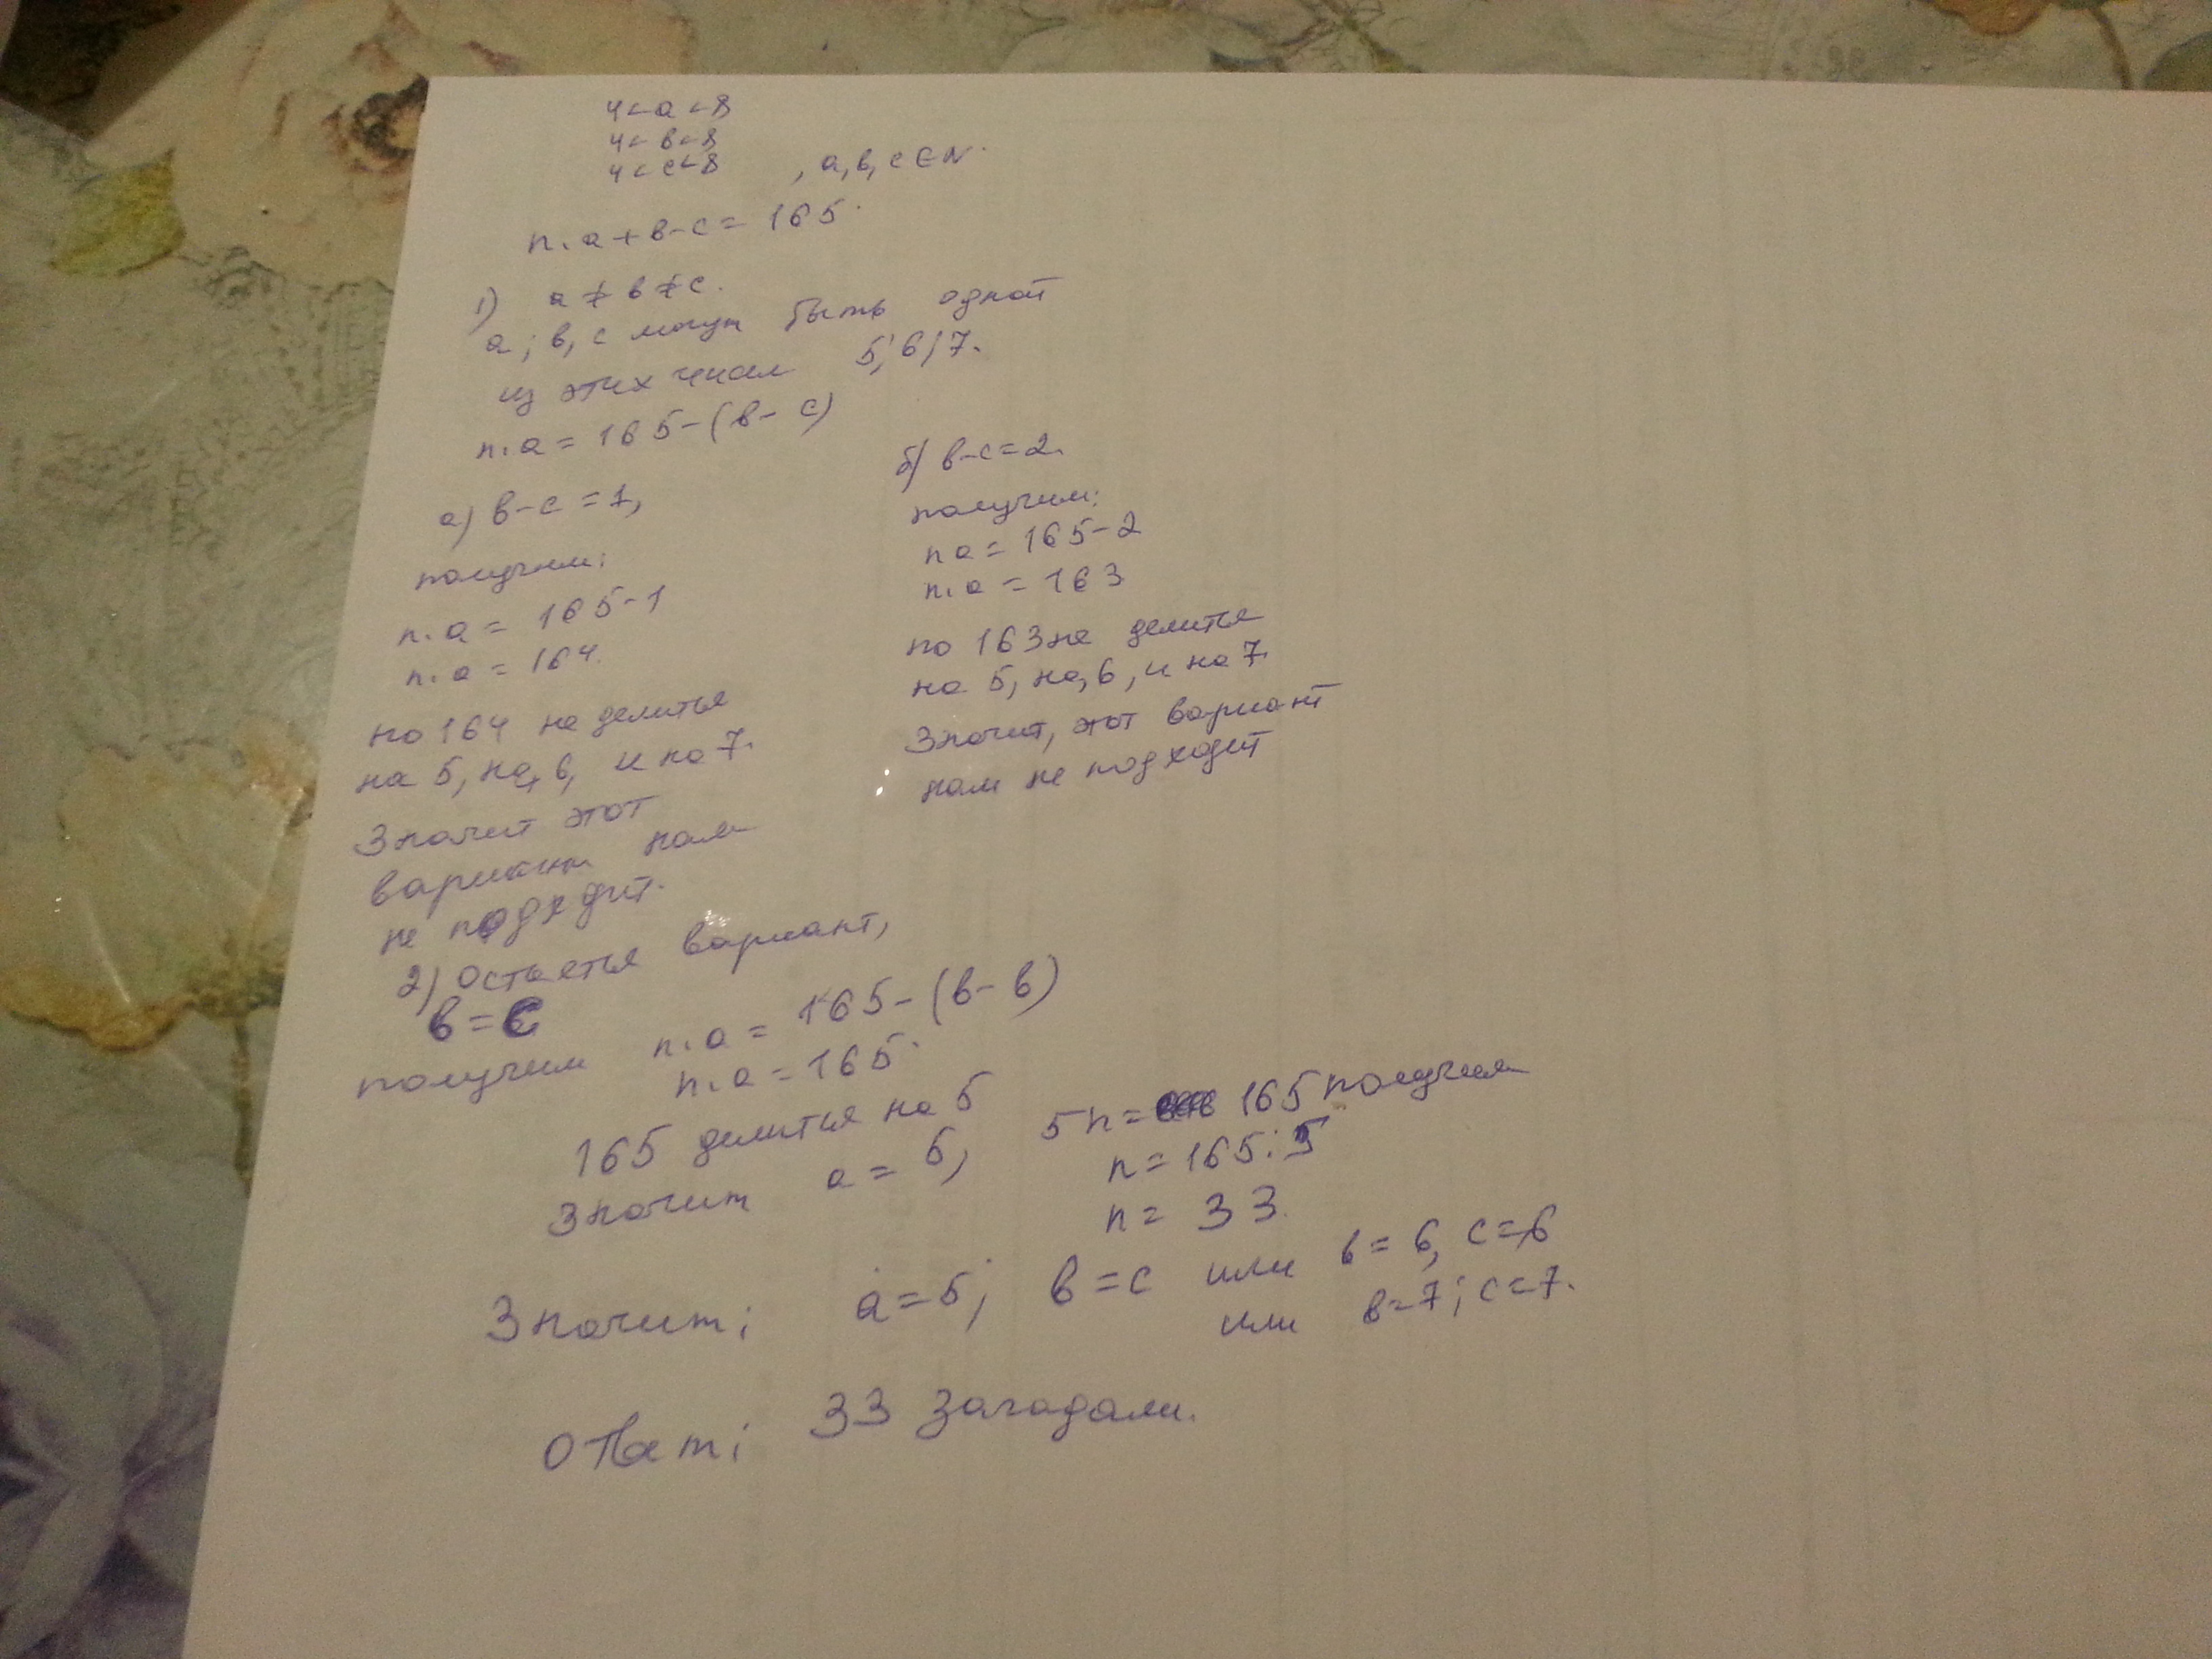 4<a<8
4<в<8
4<c<8 , a,в,c∈N.
n.a+в-c=165.
1) a≠в≠c.
a; в, c могут быть одной
из этих чисел 5; 6; 7.
n.a=165-(в-c)
а) в-c=1,
получим:
n.a=165-1
n.a=164.
но 164 не делится
на 5, на, 6, и на 7.
Значит этот
вариант нам
не подходит.
б) в-c=2.
получим:
na=165-2
n.a=163
но 163 не делится
на 5, на, 6, и на 7.
Значит, этот вариант
нам не подходит
2) Остается вариант,
в=c
получим n.a=165-(в-в)
n.a=165.
165 делится на 5
Значит a=5, 5n= 165 получим
n=165:5
n=33.
Значит; a=5; в=c или в=6, c=6
или в=7; c=7.
Ответ; 33 загадали.